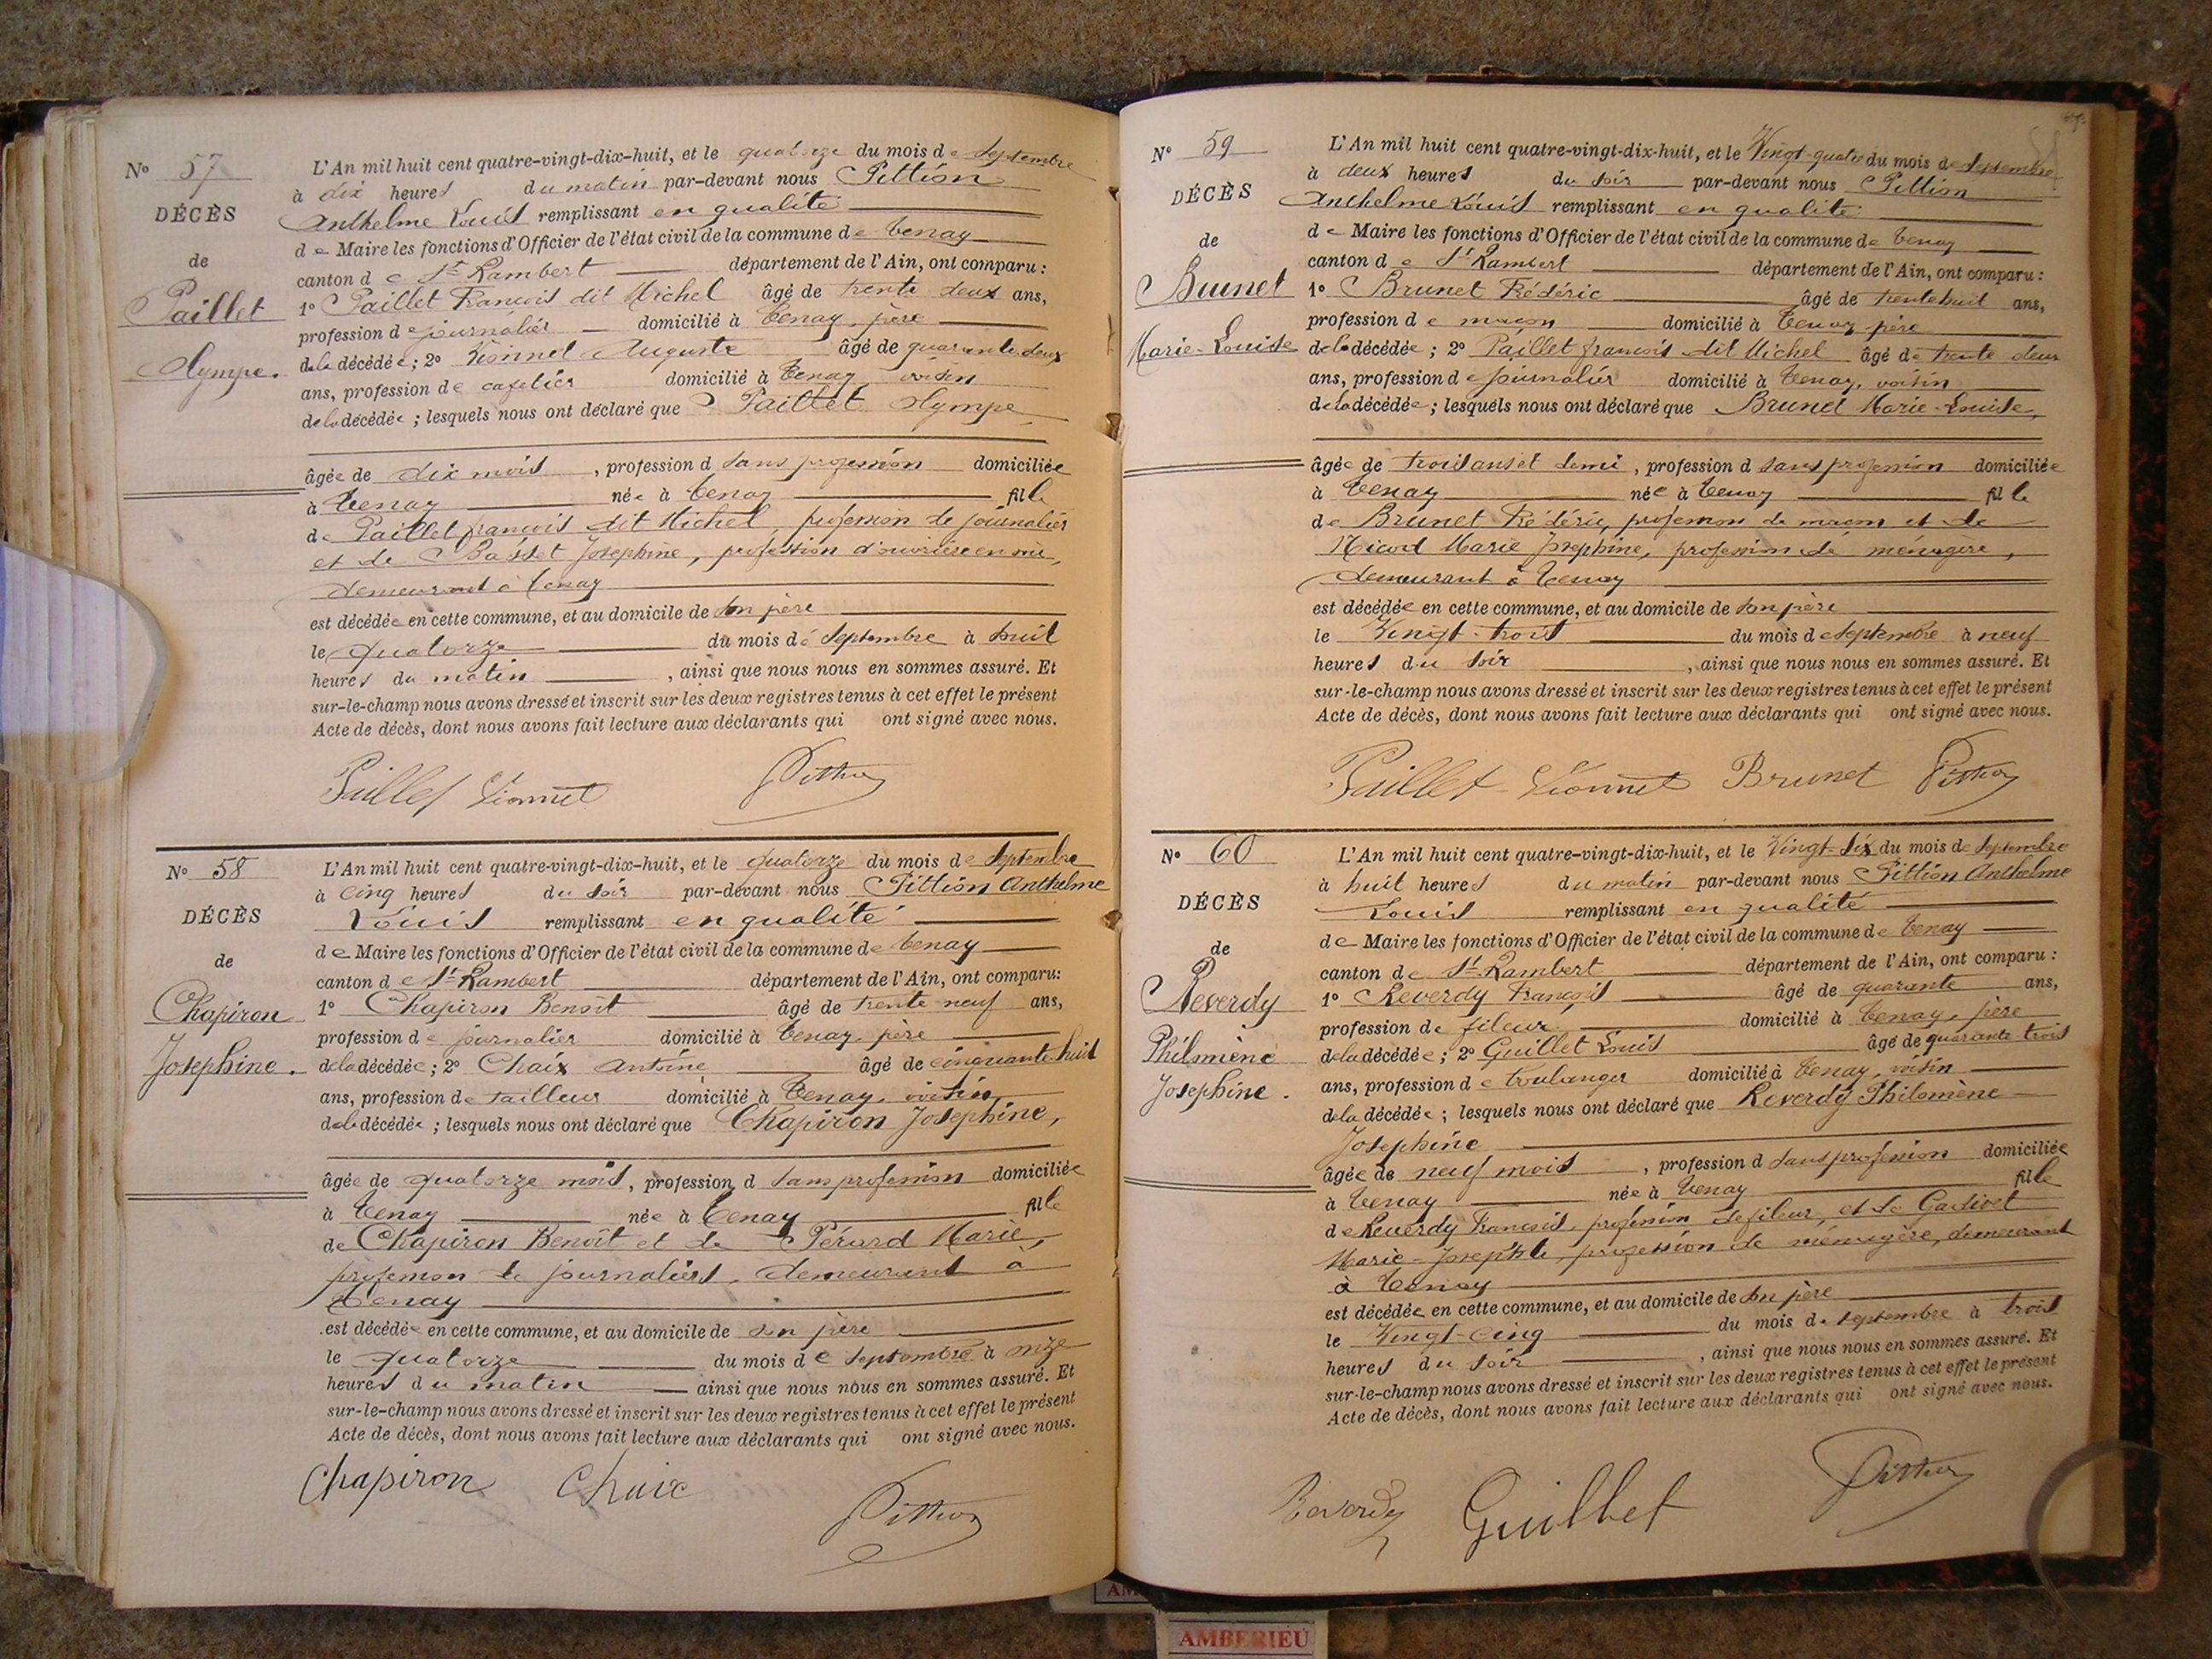 N° 57
DÉCÈS
de
Paillet
Olympe.
L'An mil huit cent quatre-vingt-dix-huit, et le quatorze du mois de Septembre
à dix heures du matin par-devant nous Pittion
Anthelme Louis remplissant en qualité
de Maire les fonctions d'Officier de l'état civil de la commune de Tenay
canton de St Rambert département de l'Ain, ont comparu :
1° Paillet François dit Michel âgé de trente deux ans,
profession de journalier domicilié à Tenay, père
de la décédée ; 2° Vionnet Auguste âgé de quarante deux
ans, profession de cafetier domicilié à Tenay voisin
de la décédée ; lesquels nous ont déclaré que Paillet Olympe
âgée de dix mois , profession d sans profession domiciliée
à Tenay née à Tenay fille
de Paillet françois dit Michel, profession de journalier
et de Basset Josephine, profession d'ouvrière en soie,
demeurant à Tenay
est décédée en cette commune, et au domicile de son père
le quatorze du mois de Septembre à huit
heures du matin , ainsi que nous nous en sommes assuré. Et
sur-le-champ nous avons dressé et inscrit sur les deux registres tenus à cet effet le présent
Acte de décès, dont nous avons fait lecture aux déclarants qui ont signé avec nous.
Paillet Vionnet Pittion
N° 58
DÉCÈS
de
Chapiron
Josephine.
L'An mil huit cent quatre-vingt-dix-huit, et le quatorze du mois de Septembre
à cinq heures du soir par-devant nous Pittion Anthelme
Louis remplissant en qualité
de Maire les fonctions d'Officier de l'état civil de la commune de Tenay
canton de St Rambert département de l'Ain, ont comparu :
1° Chapiron Benoît âgé de trente neuf ans,
profession de journalier domicilié à Tenay, père
de la décédée ; 2° Chaix Antoine âgé de cinquante huit
ans, profession de tailleur domicilié à Tenay, voisin
de la décédée ; lesquels nous ont déclaré que Chapiron Josephine,
âgée de quatorze mois, profession d sans profession domiciliée
à Tenay née à Tenay fille
de Chapiron Benoît et de Pérard Marie,
profession de journaliers, demeurant à
Tenay
est décédée en cette commune, et au domicile de son père
le quatorze du mois de Septembre à onze
heures du matin ainsi que nous nous en sommes assuré. Et
sur-le-champ nous avons dressé et inscrit sur les deux registres tenus à cet effet le présent
Acte de décès, dont nous avons fait lecture aux déclarants qui ont signé avec nous.
Chapiron Chaix Pittion
N° 59
DÉCÈS
de
Brunet
Marie-Louise
L'An mil huit cent quatre-vingt-dix-huit, et le Vingt-quatre du mois de Septembre
à deux heures du soir par-devant nous Pittion
Anthelme Louis remplissant en qualité
de Maire les fonctions d'Officier de l'état civil de la commune de Tenay
canton de St Rambert département de l'Ain, ont comparu :
1° Brunet Frédéric âgé de trente huit ans,
profession de maçon domicilié à Tenay père
de la décédée ; 2° Paillet françois dit Michel âgé de trente deux
ans, profession de journalier domicilié à Tenay, voisin
de la décédée ; lesquels nous ont déclaré que Brunet Marie-Louise,
âgée de trois ans et demi , profession d sans profession domiciliée
à Tenay née à Tenay fille
de Brunet Frédéric, profession de maçon et de
Nicod Marie Josephine, profession de ménagère,
demeurant à Tenay
est décédée en cette commune, et au domicile de son père
le Vingt-trois du mois de Septembre à neuf
heures du soir , ainsi que nous nous en sommes assuré. Et
sur-le-champ nous avons dressé et inscrit sur les deux registres tenus à cet effet le présent
Acte de décès, dont nous avons fait lecture aux déclarants qui ont signé avec nous.
Paillet Vionnet Brunet Pittion
N° 60
DÉCÈS
de
Reverdy
Philomène
Josephine.
L'An mil huit cent quatre-vingt-dix-huit, et le Vingt-Six du mois de Septembre
à huit heures du matin par-devant nous Pittion Anthelme
Louis remplissant en qualité
de Maire les fonctions d'Officier de l'état civil de la commune de Tenay
canton de St Rambert département de l'Ain, ont comparu :
1° Reverdy François âgé de quarante ans,
profession de fileur, domicilié à Tenay, père
de la décédée ; 2° Guillet Louis âgé de quarante trois
ans, profession de boulanger domicilié à Tenay, voisin
de la décédée ; lesquels nous ont déclaré que Reverdy Philomène
Josephine
âgée de neuf mois , profession d sans profession domiciliée
à Tenay née à Tenay fille
de Reverdy François, profession de fileur, et de
Marie-Josephte, profession de ménagère, demeurant
à Tenay
est décédée en cette commune, et au domicile de son père
le Vingt-cinq du mois de Septembre à trois
heures du soir , ainsi que nous nous en sommes assuré. Et
sur-le-champ nous avons dressé et inscrit sur les deux registres tenus à cet effet le présent
Acte de décès, dont nous avons fait lecture aux déclarants qui ont signé avec nous.
Reverdy Guillet Pittion
AMBERIEU